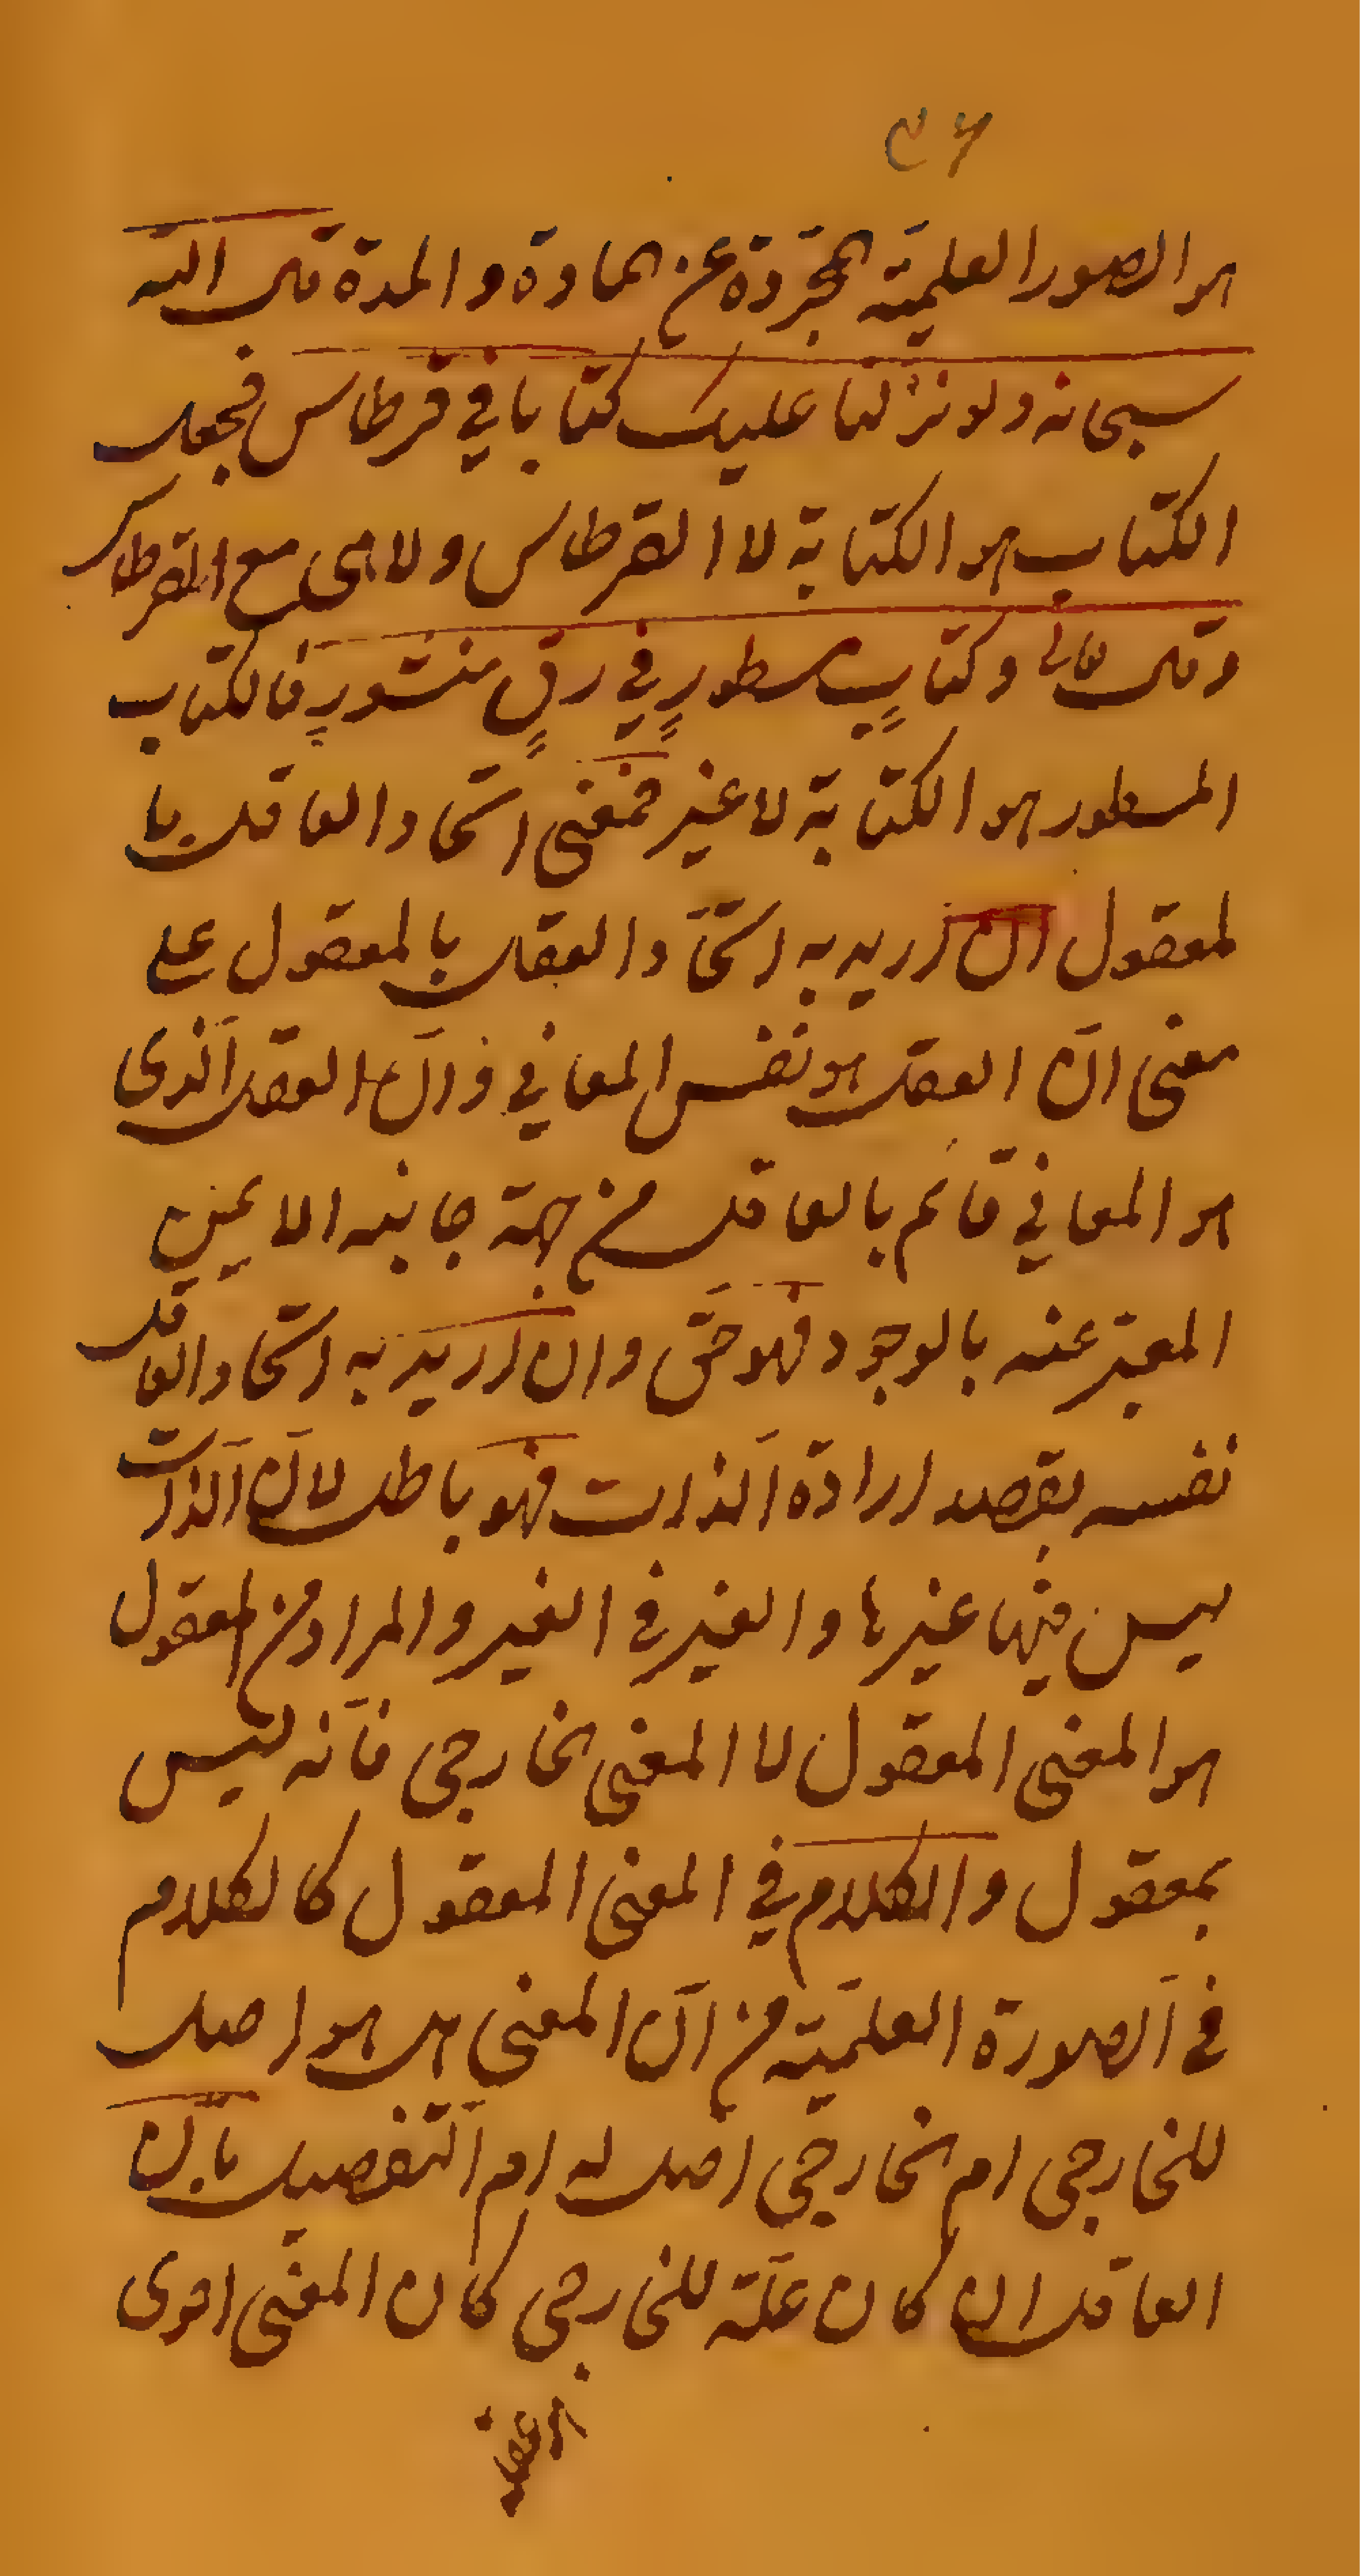 هو الصور العلمیّه المجرّدة عن المادة و المدة قال الله
سبحانه و لو نزّلنا علیک کتابا فی قرطاس فجعل
الکتاب هو الکتابة لا القرطاس و لا هی مع القرطاس
و قال تعالی و کتابٍ مسطورٍ فی رقٍ منشورٍ فالکتاب
المسطور هو الکتابة لا غیر فمعنی اتحاد العاقل با
لمعقول ان ارید به اتّحاد العقل بالمعقول علی
معنی انّ العقل هو نفس المعانی و انّ العقل الّذی
هو المعانی قائم بالعاقل من جهة جانبه الایمن
المعبّر عنه بالوجود فهو حقّ و ان ارید به اتحاد العاقل
نفسه بقصد ارادة الذات فهو باطل لانّ الذّات
لیس فیها غیرها و الغیر فی الغیر و المراد من المعقول
هو المعنی المعقول لا المعنی الخارجی فانّه لیس
بمعقول و الکلام فی المعنی المعقول کالکلام
فی الصورة العلمیّه من انّ المعنی هل هو اصل
للخارجی ام الخارجی اصل له ام التّفصیل بانّ
العاقل ان کان علّة للخارجی کان المعنی اقوی